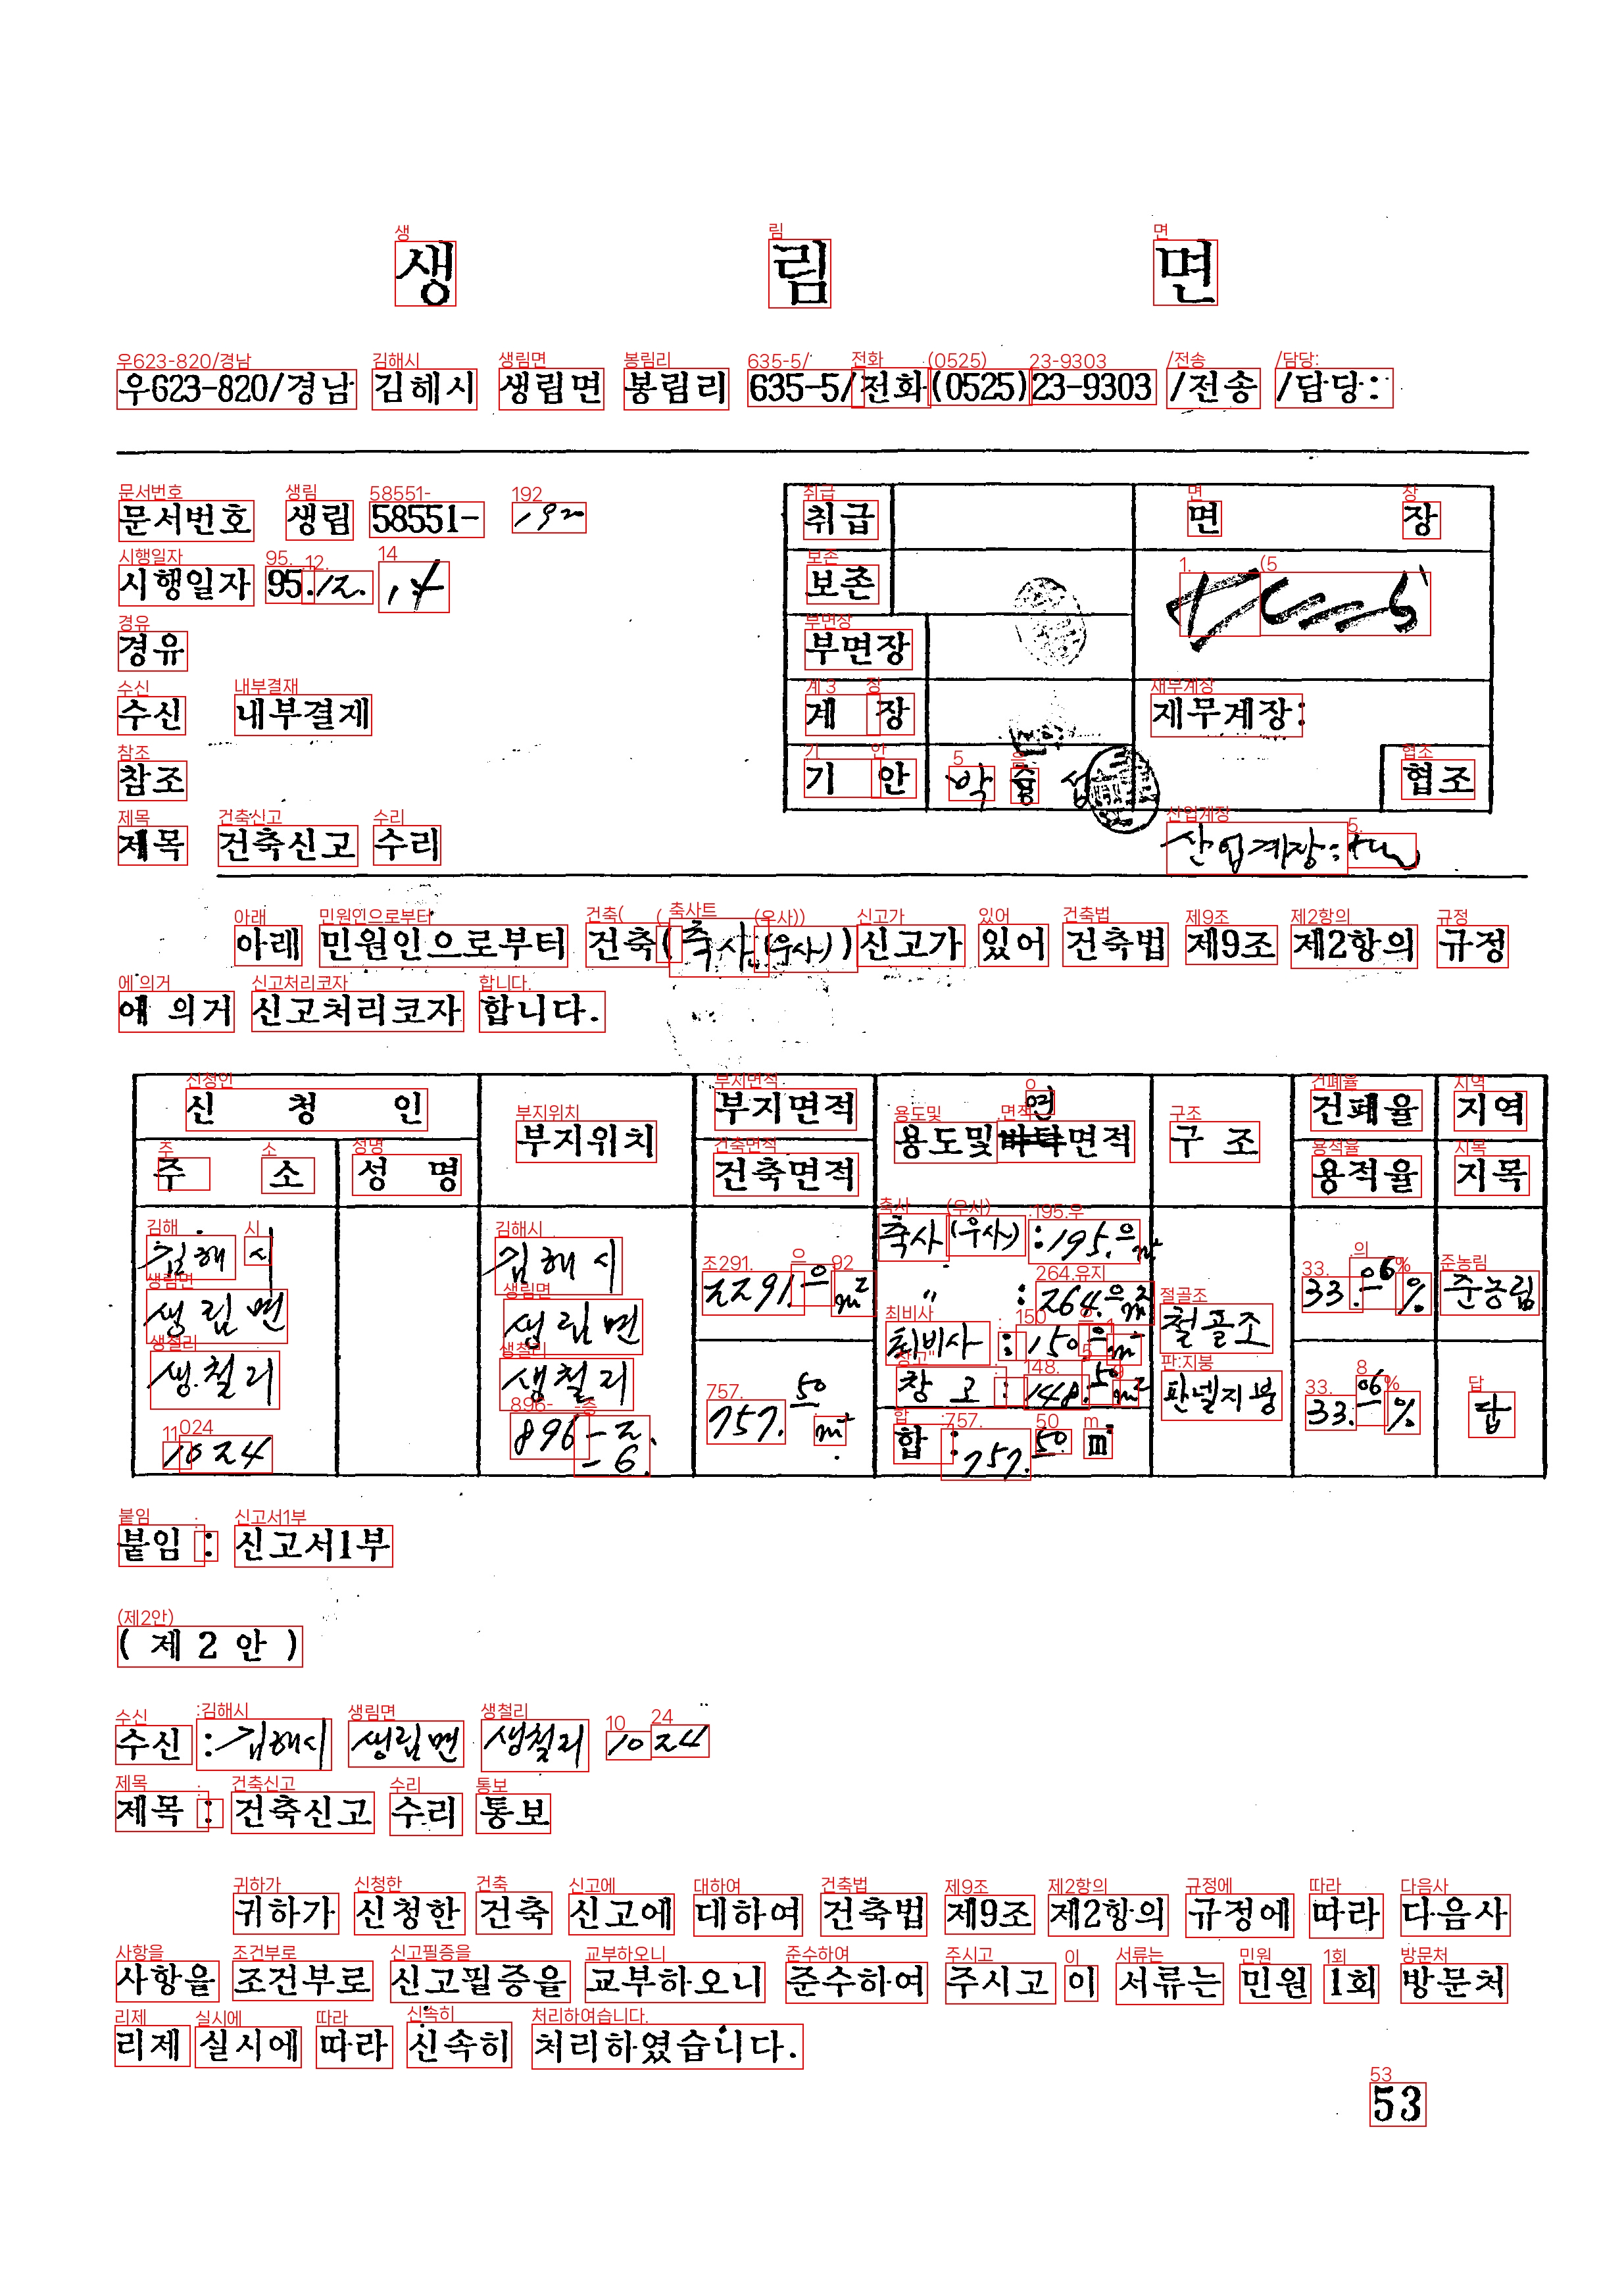 생 림 면
우623-820/경남 김해시 생림면 봉림리 635-5/전화(0525)23-9303 /전송 /담당:
문서번호 생림 58551-192
시행일자 95.12.14
경유
수신 내부결재
참조
제목 건축신고 수리
취급 면 장
보존
부면장
계 장 재무계장:
기 안 박 섭 협조
산업계장:
아래 민원인으로부터 건축(축사(우사))신고가 있어 건축법 제9조 제2항의 규정
에 의거 신고처리코자 합니다.
신 청 인 부지위치 부지면적 용도및 연면적 구 조 건폐율 지역
주 소 성 명 건축면적 용적율 지목
김해시 생림면 생철리 1024
김해시 생림면 생철리 896-2. -6.
2291.0m²
757.50m²
축사(우사):195.0m²
" :264.0m²
퇴비사:150.0m²
창고:148.50m²
합:757.50㎡
철골조
판넬지붕
33.06%
33.06%
준농림
답
붙임 : 신고서1부
( 제 2 안 )
수신 :김해시 생림면 생철리 1024
제목 : 건축신고 수리 통보
귀하가 신청한 건축 신고에 대하여 건축법 제9조 제2항의 규정에 따라 다음사
사항을 조건부로 신고필증을 교부하오니 준수하여 주시고 이 서류는 민원 1회 방문처
리제 실시에 따라 신속히 처리하였습니다.
53